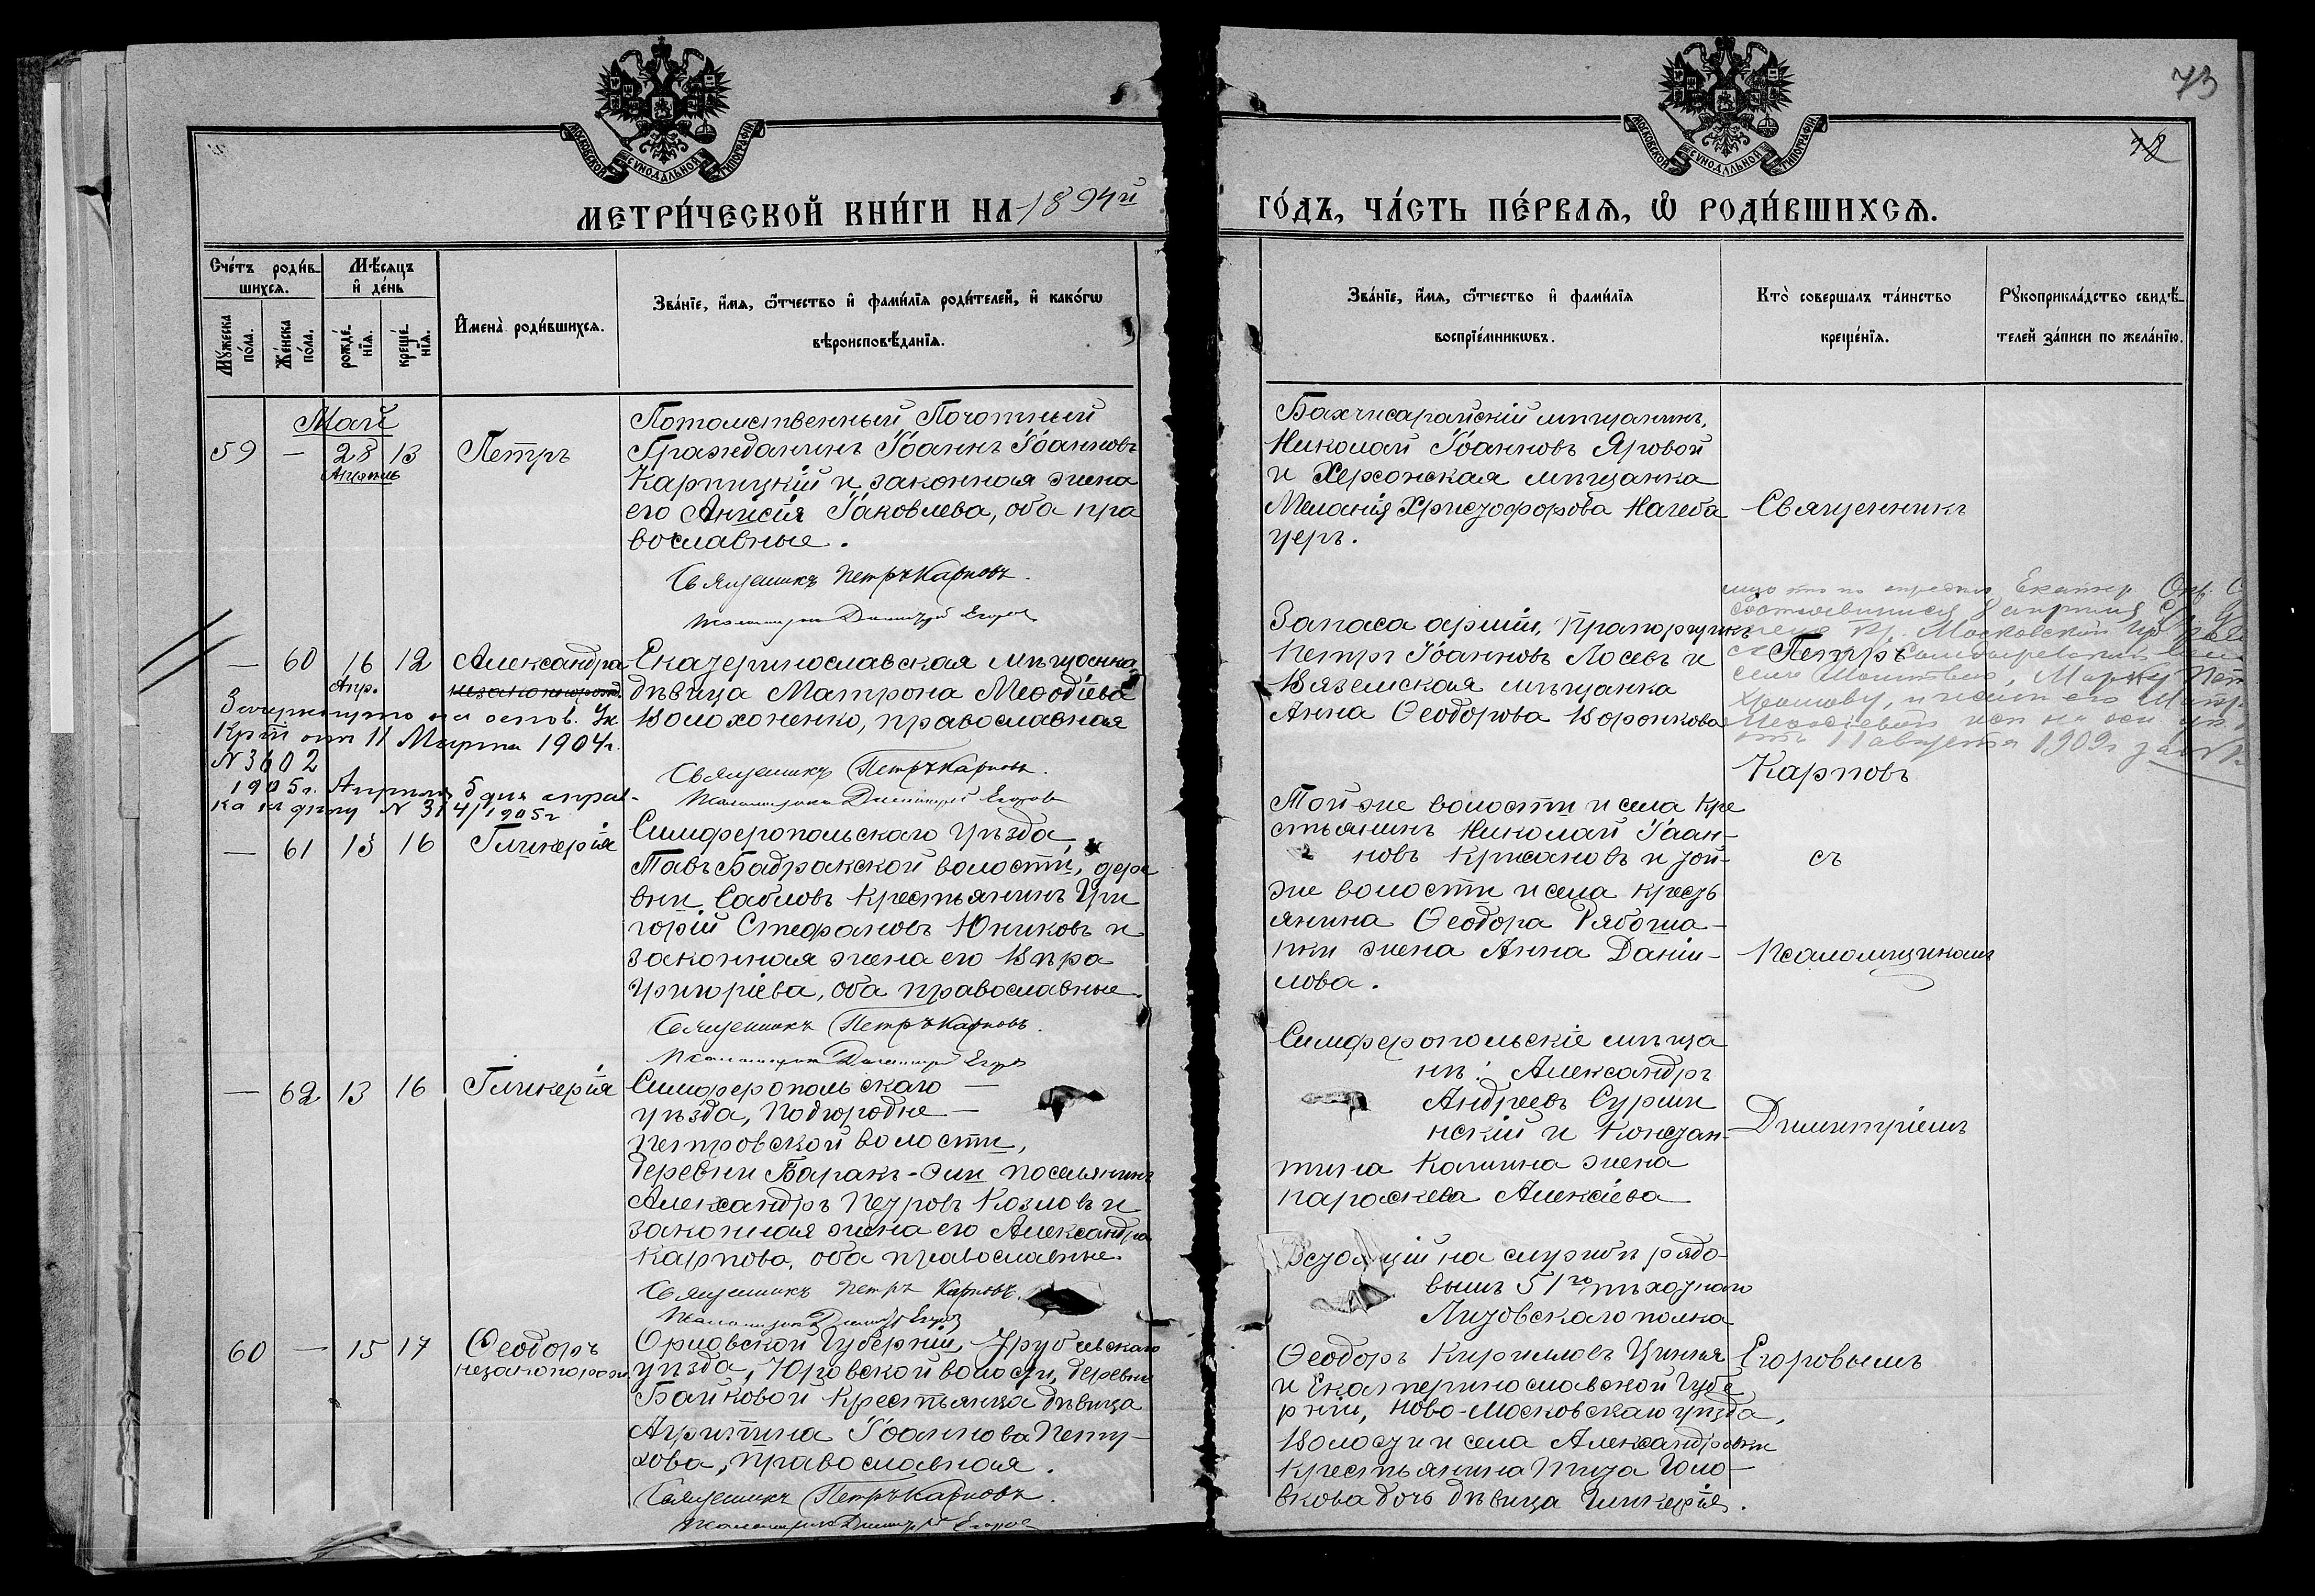 73
78
МОСКОВСКОЙ СУНОДАЛЬНОЙ ТИПОГРАФІИ
МОСКОВСКОЙ СУНОДАЛЬНОЙ ТИПОГРАФІИ
МЕТРИ́ЧЕСКОЙ КНИ́ГИ НА 1894й
ГО́ДЪ, ЧА́СТЬ ПЕ́РВАѦ, Ѡ҆ РОДИ́ВШИХСѦ.
Сче́тъ роди́в-
шихсѧ.
Мѣ́сяцъ
и҆ де́нь
Мꙋ́жеска по́ла.
Же́нска по́ла.
рожде́-
нїѧ.
креще́-
нїѧ.
И҆мена̀ роди́вшихсѧ.
Зва́нїе, и҆́мѧ, ѻ҆́тчество и҆ фами́лїѧ роди́телей, и҆ како́гѡ
вѣроисповѣ́данїѧ.
Зва́нїе, и҆́мѧ, ѻ҆́тчество и҆ фами́лїѧ
воспрїе́мникѡвъ.
Кто̀ соверша́лъ та́инство
креще́нїѧ.
Рꙋкоприкла́дство свидѣ́-
телей за́писи по жела́нїю.
Май
59 — 28 13 Петръ
Апрель
Потомственный Почотный
Гражданинъ Іоаннъ Іоанновъ
Карпицкій и законная жена
его Анисія Іаковлева, оба пра
вославные.
Священникъ Петръ Карповъ.
Псаломщикъ Димитрій Егоровъ
Бахчисарайскій мѣщанинъ,
Николай Іоанновъ Яровой
и Херсонская мѣщанка
Меланія Христофорова Нагеба
церъ.
Священникъ
— 60 16 12 Александра
Апр. незаконнорожд.
Екатеринославская мѣщанка
дѣвица Матрона Меѳодіева
Волохоненко, православная
Священникъ Петръ Карповъ.
Псаломщикъ Димитрій Егоровъ
Зачеркнуто на основ. Ук
Крті отъ 11 Марта 1904 г.
N 3602
1905 г. Апреля 5 дня справ-
ка къ дѣлу N 314/1905 г
Запаса арміи, Прапорщикъ
Петръ Іоанновъ Лосевъ и
Вяземская мѣщанка
Анна Ѳеодорова Воронкова
Екатер
состоявшися 8 апреля
Московской губ
Петръ
Марку
отъ 11 августа 1909 г за N
Карповъ
— 61 13 16 Гликерія
Симферопольскаго уѣзда,
Тавъ Бадракской волости, дере
вни Сабловъ крестьянинъ Гри
горій Стефановъ Юниковъ и
законная жена его Вѣра
Григоріева, оба православные.
Священникъ Петръ Карповъ.
Псаломщикъ Димитрій Егоровъ
Той-же волости и села кре
стьянинъ Николай Іоан-
новъ Крисановъ и той-
же волости и села кресть
янина Ѳеодора Рябоша-
пки жена Анна Даніи-
лова.
съ
Псаломщикомъ
— 62 13 16 Гликерія
Симферопольскаго —
уѣзда, Подгородне —
Петровской волости,
деревни Баракъ-Эли поселянинъ
Александръ Петровъ Козловъ и
законная жена его Александра
Карпова, оба православные.
Священникъ Петръ Карповъ.
Псаломщикъ Димитрій Егоровъ
Симферопольскіе мѣща
не: Александръ
Андреевъ Сурми
нскій и Констан-
тина Калина жена
Параскева Алексіева
Димитріемъ
60 — 15 17 Ѳеодоръ
незаконорожд.
Орловской Губерніи, Трубчевскаго
уѣзда, Юровской волости, деревни
Байковой крестьянка дѣвица
Агрипина Іоаннова Пету-
хова, православная.
Священникъ Петръ Карповъ.
Псаломщикъ Димитрій Егоровъ
на службѣ рядо-
вымъ 51го пѣхотнаго
Литовскаго полка
Ѳеодоръ Кирилловъ
и Екатеринославской Губе
рніи, Ново-Московскаго уѣзда,
Волости и села Александровки
крестьянина Тита Голо-
вкова дочь дѣвица Гликерія.
Егоровымъ